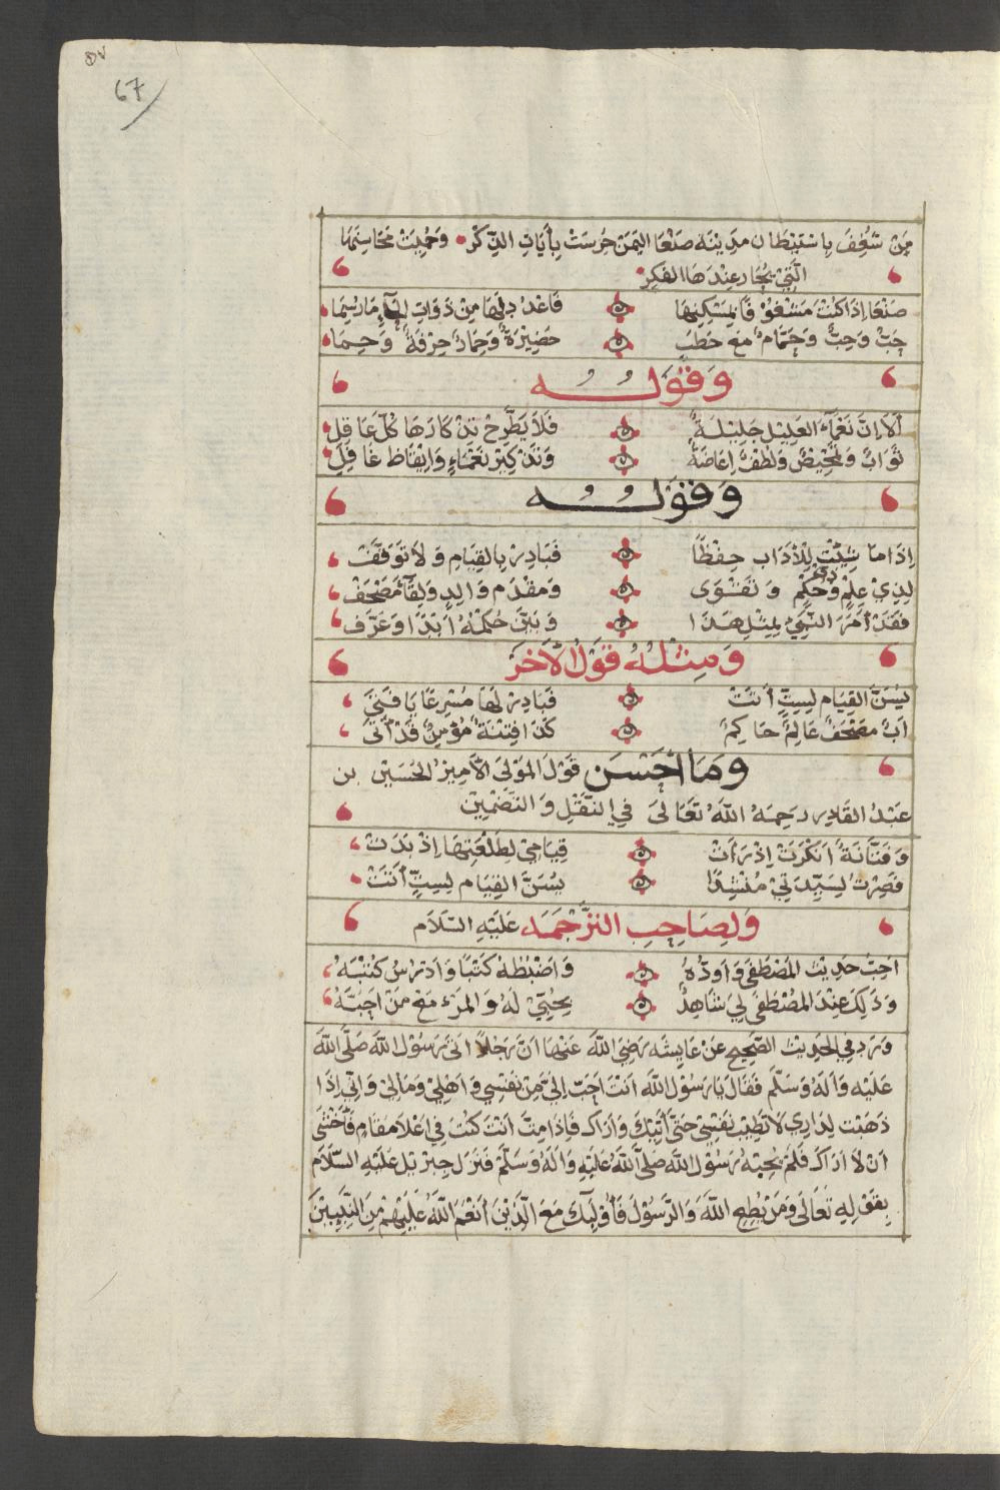 67
مَنْ شُغِفَ بِاسْتِيطَان مَدِينَة صَنْعَا اليَمَن حُرِسَتْ بِأَيَاتِ الذِّكْر وَحُمِيَتْ مَحَاسِنهَا
الَّتِي يَحَار عِنْدَهَا الفِكر
صَنْعَا إِذَا كُنْتَ مَشْغُوْ فًا بِمَسْكِنِهَا فَاعْدُدْ لَهَا مِنْ ذَوَاتِ مَا رُسِمَا
جُبٌّ وَحِبٌّ وَحَمَّام مَعْ حَطَبٍ حَضِيْرَة وَحِمَار حِرْفَة وَحِمَا
وَقَوْلُه
أَلاَ اِنَّ نَعْمَاءَ العَلِيْلِ جَلِيْلَة فَلاَ يَطَّرِحْ تَذْكَارَهَا كُلّ عَاقِلِ
ثَوَابٌ وَتَمْحِيْصٌ وَلُطْفُ وَتَذْكِيْر نَعْمَاءٍ وَاِيْقَاظ غَافِلِ
وَقَوْلُه
اِذَا مَا شِئْتَ لِلأدَابِ حِفْظًا فَبَادِرْ بِالقِيَامِ وَلاَ تَوَقَّفْ
لِذِيْ عِلْمٍ وَحُكْمٍ وَتَقْوَى وَمَقْدَم وَالِدٍ وَلِقَاء مُصْحَفْ
فَقَدْ أَمَرَ النَّبِيُّ بِمِثْلِ هَذَا وَبَيَّنَ حُكْمَهُ أَبَدًا وَعَرَّفْ
وَمِثْلُهُ قَوْلُ الآخَرَ
يُسَنُّ القِيَام لِسِتٍّ أَتَتْ فَبَادِرْ لَهَا مُسْرِعًا يَا فَتَى
اَبٌ مُصْحَفٌ عَالِمٌ حَاكِمٌ كَذَا فِتْنَة مُؤْمِنٌ قَدْ أَتَى
وَمَا اَحْسَن قَوْلَ المَوْلَى الأَمِيْر الحُسَيْن بن
عَبْدُ القَادِر رَحِمَهُ اللهُ تَعَالَى فِي النَّقْلِ وَالتَّضْمِيْن
وَفَتَّانَةٍ اَنْكَرَتْ اِذْ رَأَتْ قِيَامِيْ لِطَلْعَتِهَا اِذْ بَدَتْ
فَصِرْتُ لِسَيِّدَتِيْ مُنْشِدًا يُسَنُّ القِيَام لِسِتٍّ أَتَتْ
وَلِصَاحِبِ التَّرْجَمَه عَلَيْهِ السَّلاَم
اُحِبُّ حَدِيْث المُصْطَفَى وَاَوَدُّهُ وَاَضْبُطُهُ كَتْبًا وَاَدْرُسُ كُتْبَهُ
وَذَلِكَ عِنْدَ المُصْطَفَى لِيْ شَاهِدٌ بِحُبِّيْ لَهُ وَالمَرْء مَعْ مَنْ اَحَبَّهُ
وَرَدَ فِي الحَدِيْث الصَّحِيْحِ عَنْ عَايِشَه رَضِيَ اللهُ عَنْهَا اَنَّ رَجُلاً اَتَى رَسُوْل اللهِ صَلَّى اللهُ
عَلَيْهِ وَآلِهِ وَسَلَّم فَقَالَ يَا رَسُوْل اللهِ اَنْتَ اَحَبّ اِلَيَّ مِنْ نَفْسِيْ وَاَهْلِيْ وَمَالِيْ وَاِنِّي اِذَا
ذَهَبْت لِدَارِي لاَ تَطِيْب نَفْسِيْ حَتَّى أَتِيَكَ وَاَرَاكَ فَإِذَا مِتَّ اَنْتَ كُنْتَ فِي اَعْلاَ مَقَامٍ فَأَخْشَى
اَنْ لاَ اَرَاكَ فَلَمْ يُجِبْهُ رَسُوْل اللهِ صَلَّى اللهُ عَلَيْهِ وَآلِهِ وَسَلَّمْ فَنَزَلَ جِبْرِيْل عَلَيْهِ السَّلاَم
بِقَوْلِهِ تَعَالَى وَمَنْ يُطِعِ اللهَ وَالرَّسُوْلَ فَأُوْلَئِكَ مَعَ الَّذِيْنَ أَنْعَمَ اللهُ عَلَيْهِمْ مِنَ النَّبِيِّيْنَ